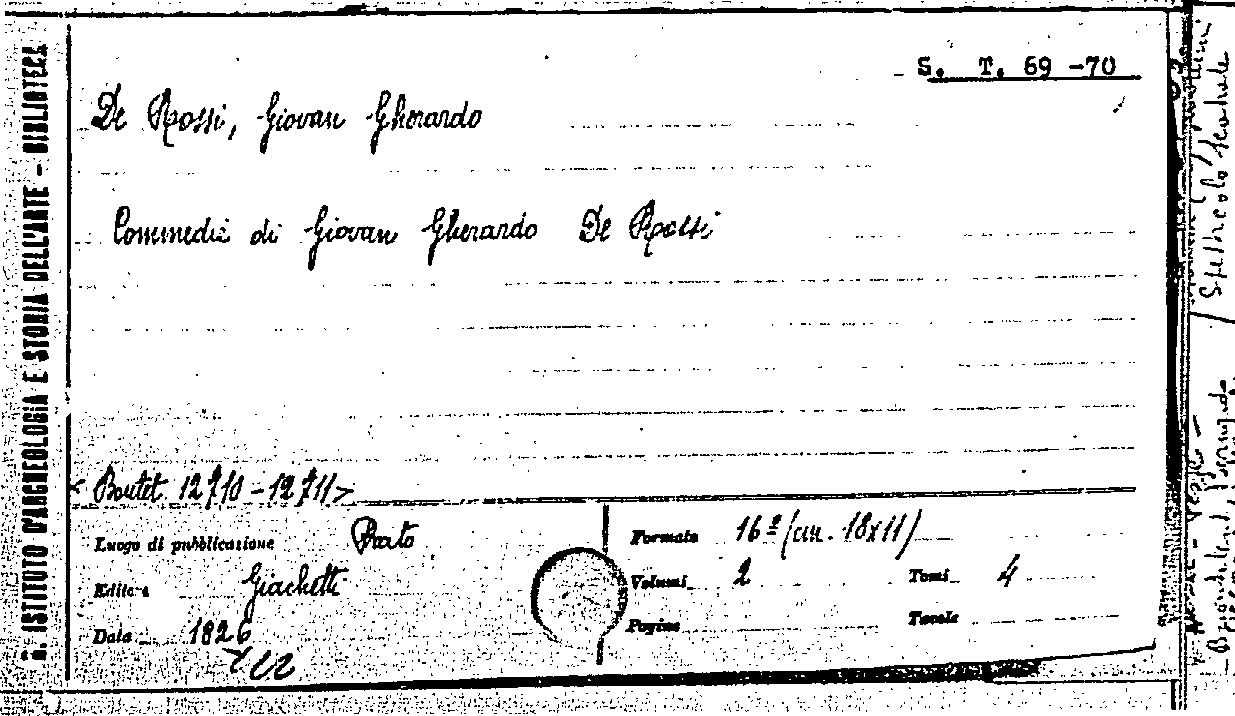 R. ISTITUTO D'ARCHEOLOGIA E STORIA DELL'ARTE - BIBLIOTECA
S. T. 69 -70
De Rossi, Giovan Gherardo
Commedie di Giovan Gherardo De Rossi
< Boutet 12710 - 12711 >
Luogo di pubblicazione Prato
Editore Giachetti
Data 1826
Formato 16º (cm. 18x11)
Volumi 2 Tomi 4
Pagine Tavole